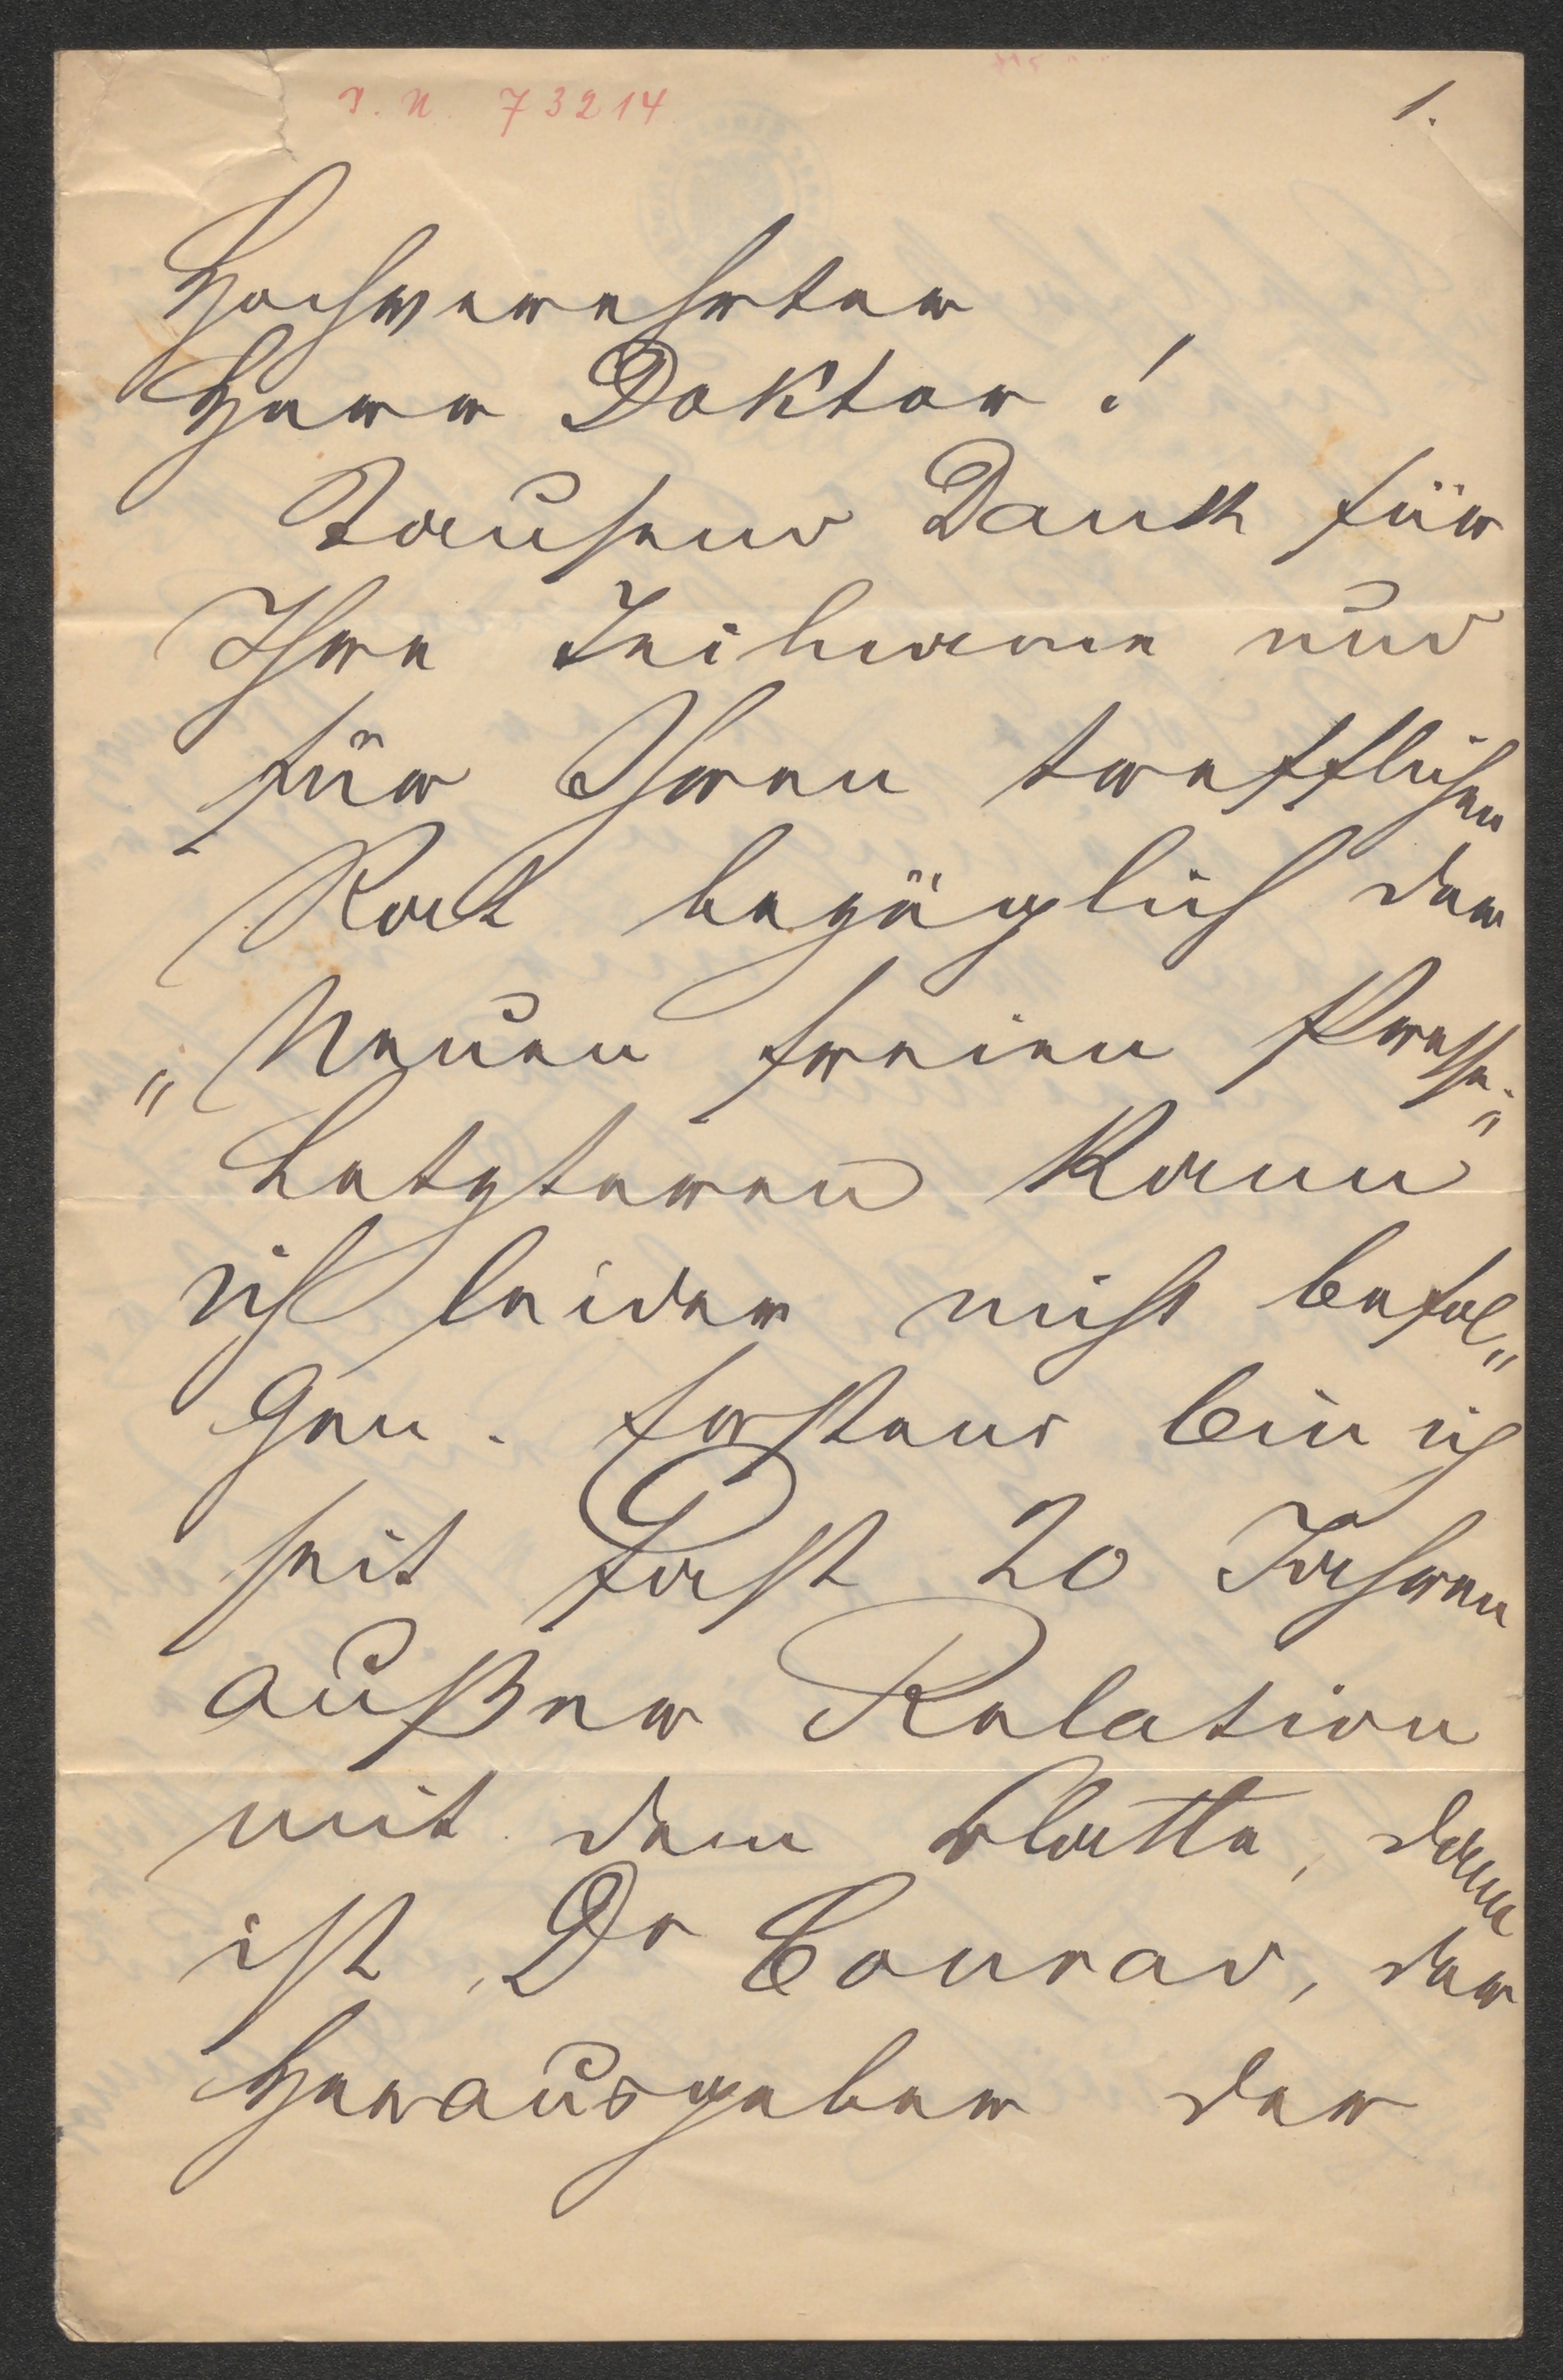 I. N. 73214
1.
Hochverehrter
Herr Doktor!
Tausend Dank für
Ihre Teilname und
für Ihren trefflichen
Rat bezüglich der
„Neuen freien Presse."
Letzteren kann
ich leider nicht befol„
gen. Erstens bin ich
seit fast 20 Jahren
außer Relation
mit dem Blatte, dann
ist Dr Conrad, der
Herausgeber der